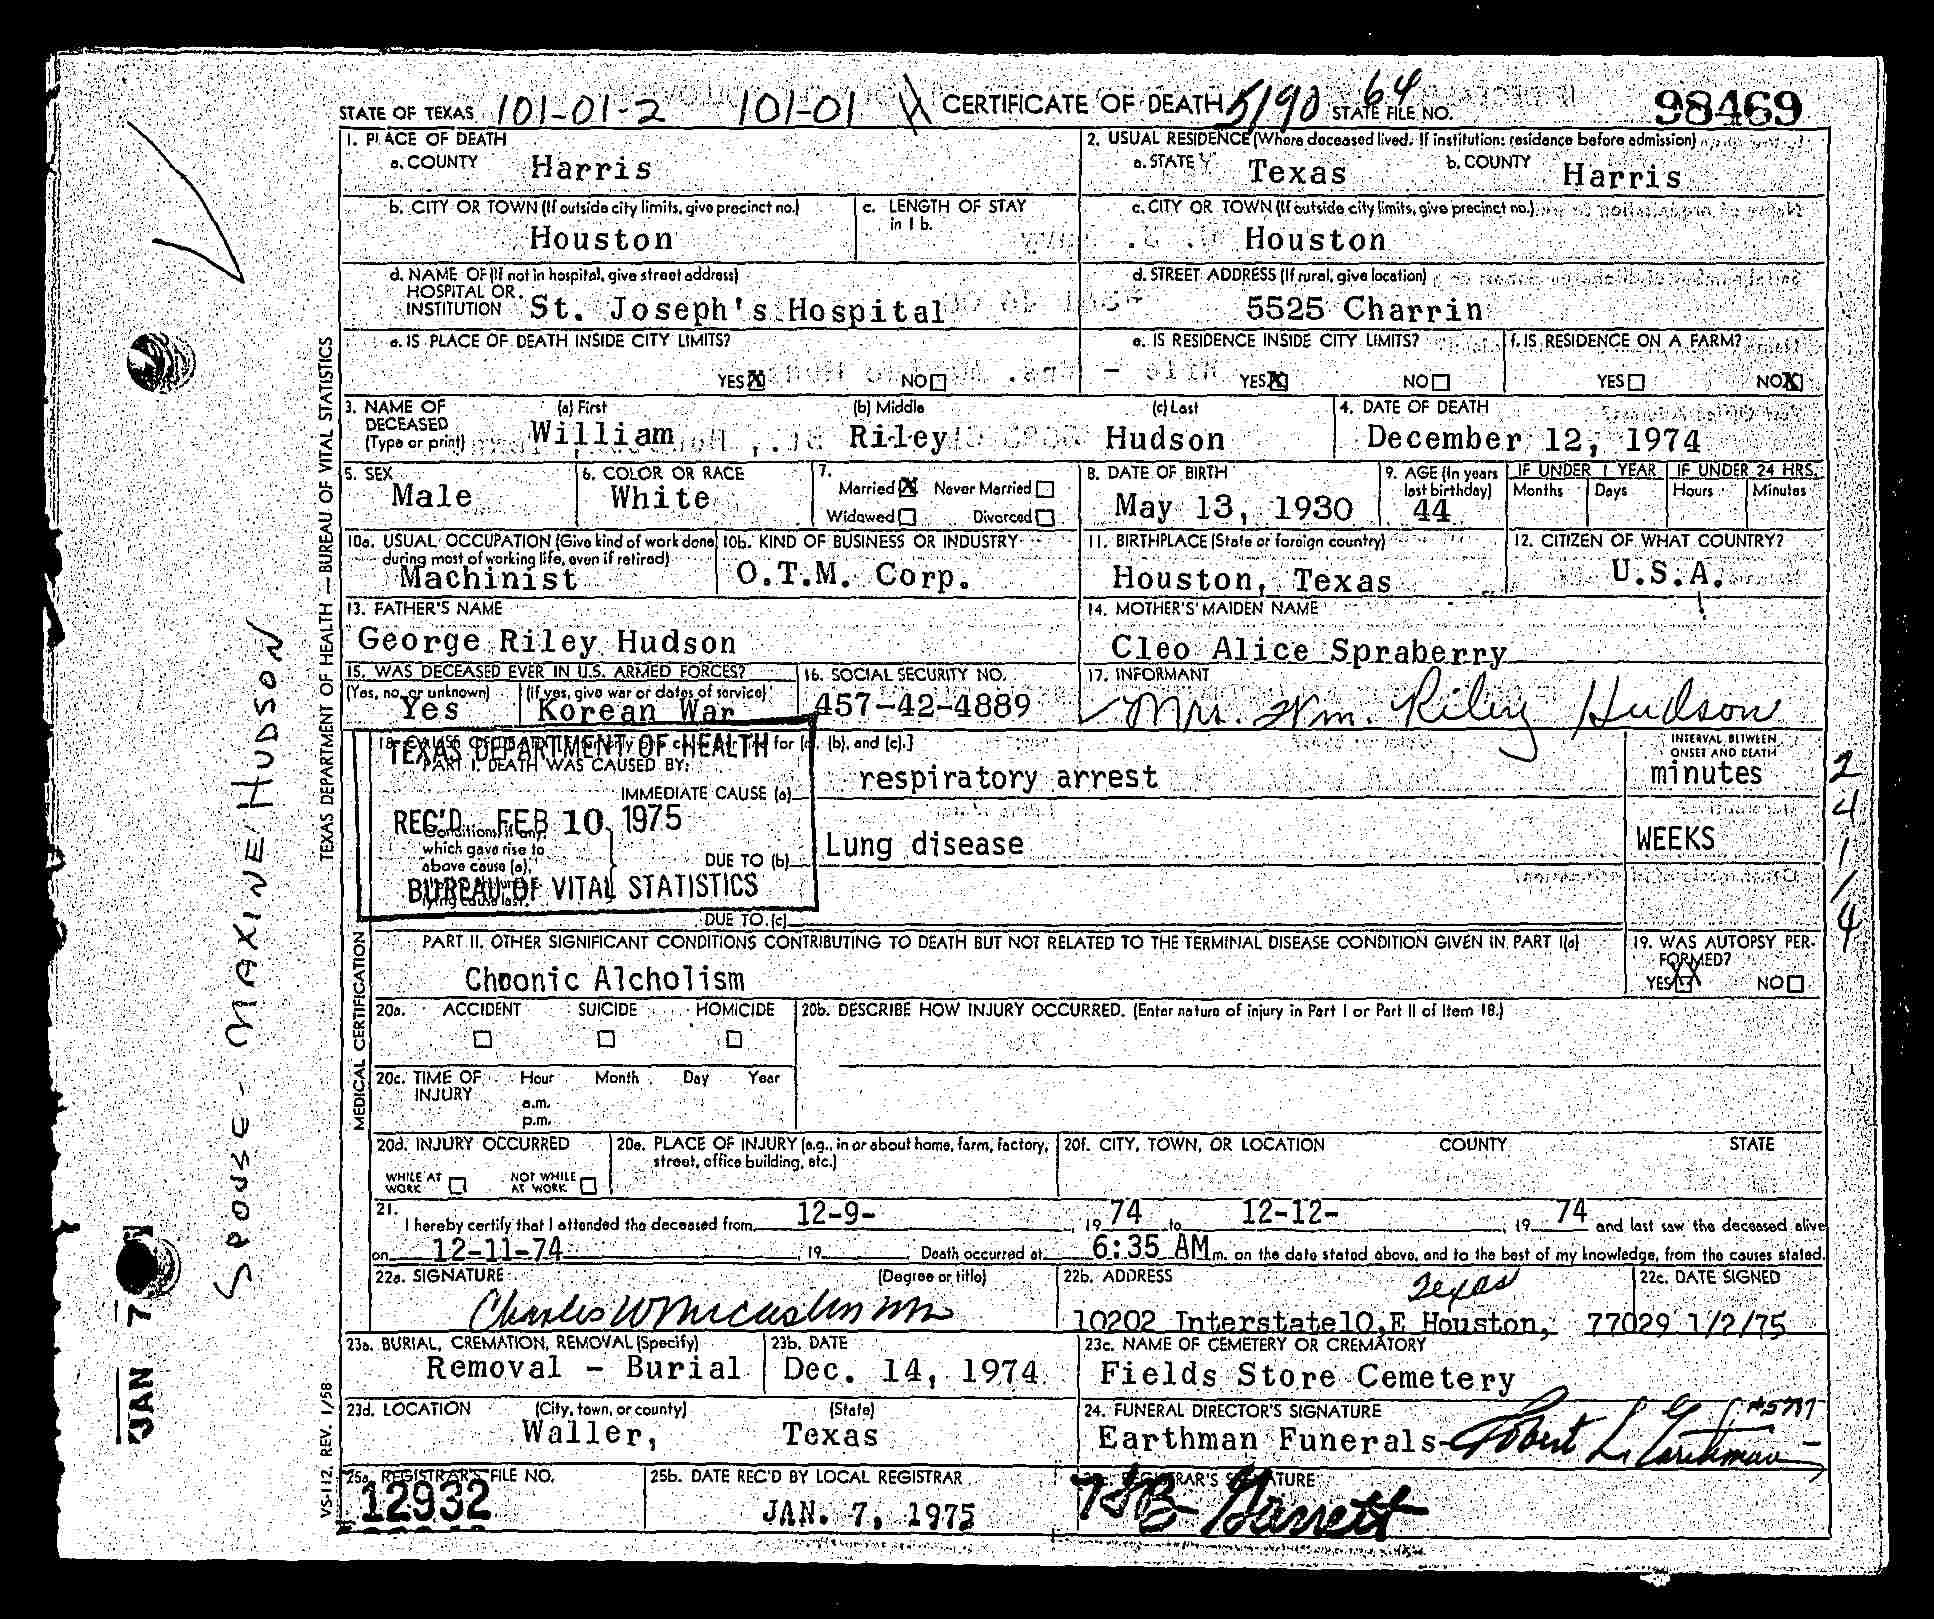 STATE OF TEXAS 101-01-2 101-01 CERTIFICATE OF DEATH 5190 64 STATE FILE NO. 98469
1. PLACE OF DEATH
a. COUNTY Harris
2. USUAL RESIDENCE (Where deceased lived. If institution: residence before admission)
a. STATE Texas b. COUNTY Harris
b. CITY OR TOWN (If outside city limits, give precinct no.) Houston
c. LENGTH OF STAY in 1 b.
c. CITY OR TOWN (If outside city limits, give precinct no.) Houston
d. NAME OF (If not in hospital, give street address) HOSPITAL OR INSTITUTION St. Joseph's Hospital
d. STREET ADDRESS (If rural, give location) 5525 Charrin
e. IS PLACE OF DEATH INSIDE CITY LIMITS? YES X NO
e. IS RESIDENCE INSIDE CITY LIMITS? YES X NO
f. IS RESIDENCE ON A FARM? YES NO X
3. NAME OF DECEASED (Type or print) (a) First William (b) Middle Riley (c) Last Hudson
4. DATE OF DEATH December 12, 1974
5. SEX Male
6. COLOR OR RACE White
7. Married X Never Married Widowed Divorced
8. DATE OF BIRTH May 13, 1930
9. AGE (In years last birthday) 44
IF UNDER 1 YEAR Months Days
IF UNDER 24 HRS. Hours Minutes
10a. USUAL OCCUPATION (Give kind of work done during most of working life, even if retired) Machinist
10b. KIND OF BUSINESS OR INDUSTRY O.T.M. Corp.
11. BIRTHPLACE (State or foreign country) Houston, Texas
12. CITIZEN OF WHAT COUNTRY? U.S.A.
13. FATHER'S NAME George Riley Hudson
14. MOTHER'S MAIDEN NAME Cleo Alice Spraberry
15. WAS DECEASED EVER IN U.S. ARMED FORCES?
(Yes, no, or unknown) Yes (If yes, give war or dates of service) Korean War
16. SOCIAL SECURITY NO. 457-42-4889
17. INFORMANT Mrs. Wm. Riley Hudson
for (a), (b), and (c).]
INTERVAL BETWEEN ONSET AND DEATH
TEXAS DEPARTMENT OF HEALTH
REC'D FEB 10 1975
BUREAU OF VITAL STATISTICS
PART I. DEATH WAS CAUSED BY:
IMMEDIATE CAUSE (a) respiratory arrest minutes
Conditions, if any, which gave rise to above cause (a),
lying cause last.
DUE TO (b) Lung disease WEEKS
DUE TO (c)
PART II. OTHER SIGNIFICANT CONDITIONS CONTRIBUTING TO DEATH BUT NOT RELATED TO THE TERMINAL DISEASE CONDITION GIVEN IN PART I(a)
Choonic Alcholism
19. WAS AUTOPSY PERFORMED? YES X NO
20a. ACCIDENT SUICIDE HOMICIDE
20b. DESCRIBE HOW INJURY OCCURRED. (Enter nature of injury in Part I or Part II of Item 18.)
20c. TIME OF INJURY Hour Month Day Year
a.m.
p.m.
20d. INJURY OCCURRED
WHILE AT WORK NOT WHILE AT WORK
20e. PLACE OF INJURY (e.g., in or about home, farm, factory, street, office building, etc.)
20f. CITY, TOWN, OR LOCATION COUNTY STATE
21. I hereby certify that I attended the deceased from 12-9- , 19 74 to 12-12- , 19 74 and last saw the deceased alive
on 12-11-74 , 19 Death occurred at 6:35 AM m. on the date stated above, and to the best of my knowledge, from the causes stated.
22a. SIGNATURE (Degree or title)
22b. ADDRESS 10202 Interstate10,E Houston, Texas 77029
22c. DATE SIGNED 1/2/75
23a. BURIAL, CREMATION, REMOVAL (Specify) Removal - Burial
23b. DATE Dec. 14, 1974
23c. NAME OF CEMETERY OR CREMATORY Fields Store Cemetery
23d. LOCATION (City, town, or county) Waller, (State) Texas
24. FUNERAL DIRECTOR'S SIGNATURE Earthman Funerals- Robert L. Earthman
25a. REGISTRAR'S FILE NO. 12932
25b. DATE REC'D BY LOCAL REGISTRAR JAN. 7, 1975
Barrett
TEXAS DEPARTMENT OF HEALTH — BUREAU OF VITAL STATISTICS
MEDICAL CERTIFICATION
VS-112, REV. 1/58
SPOUSE - MAXINE HUDSON
JAN 7
2
4
1
/
4